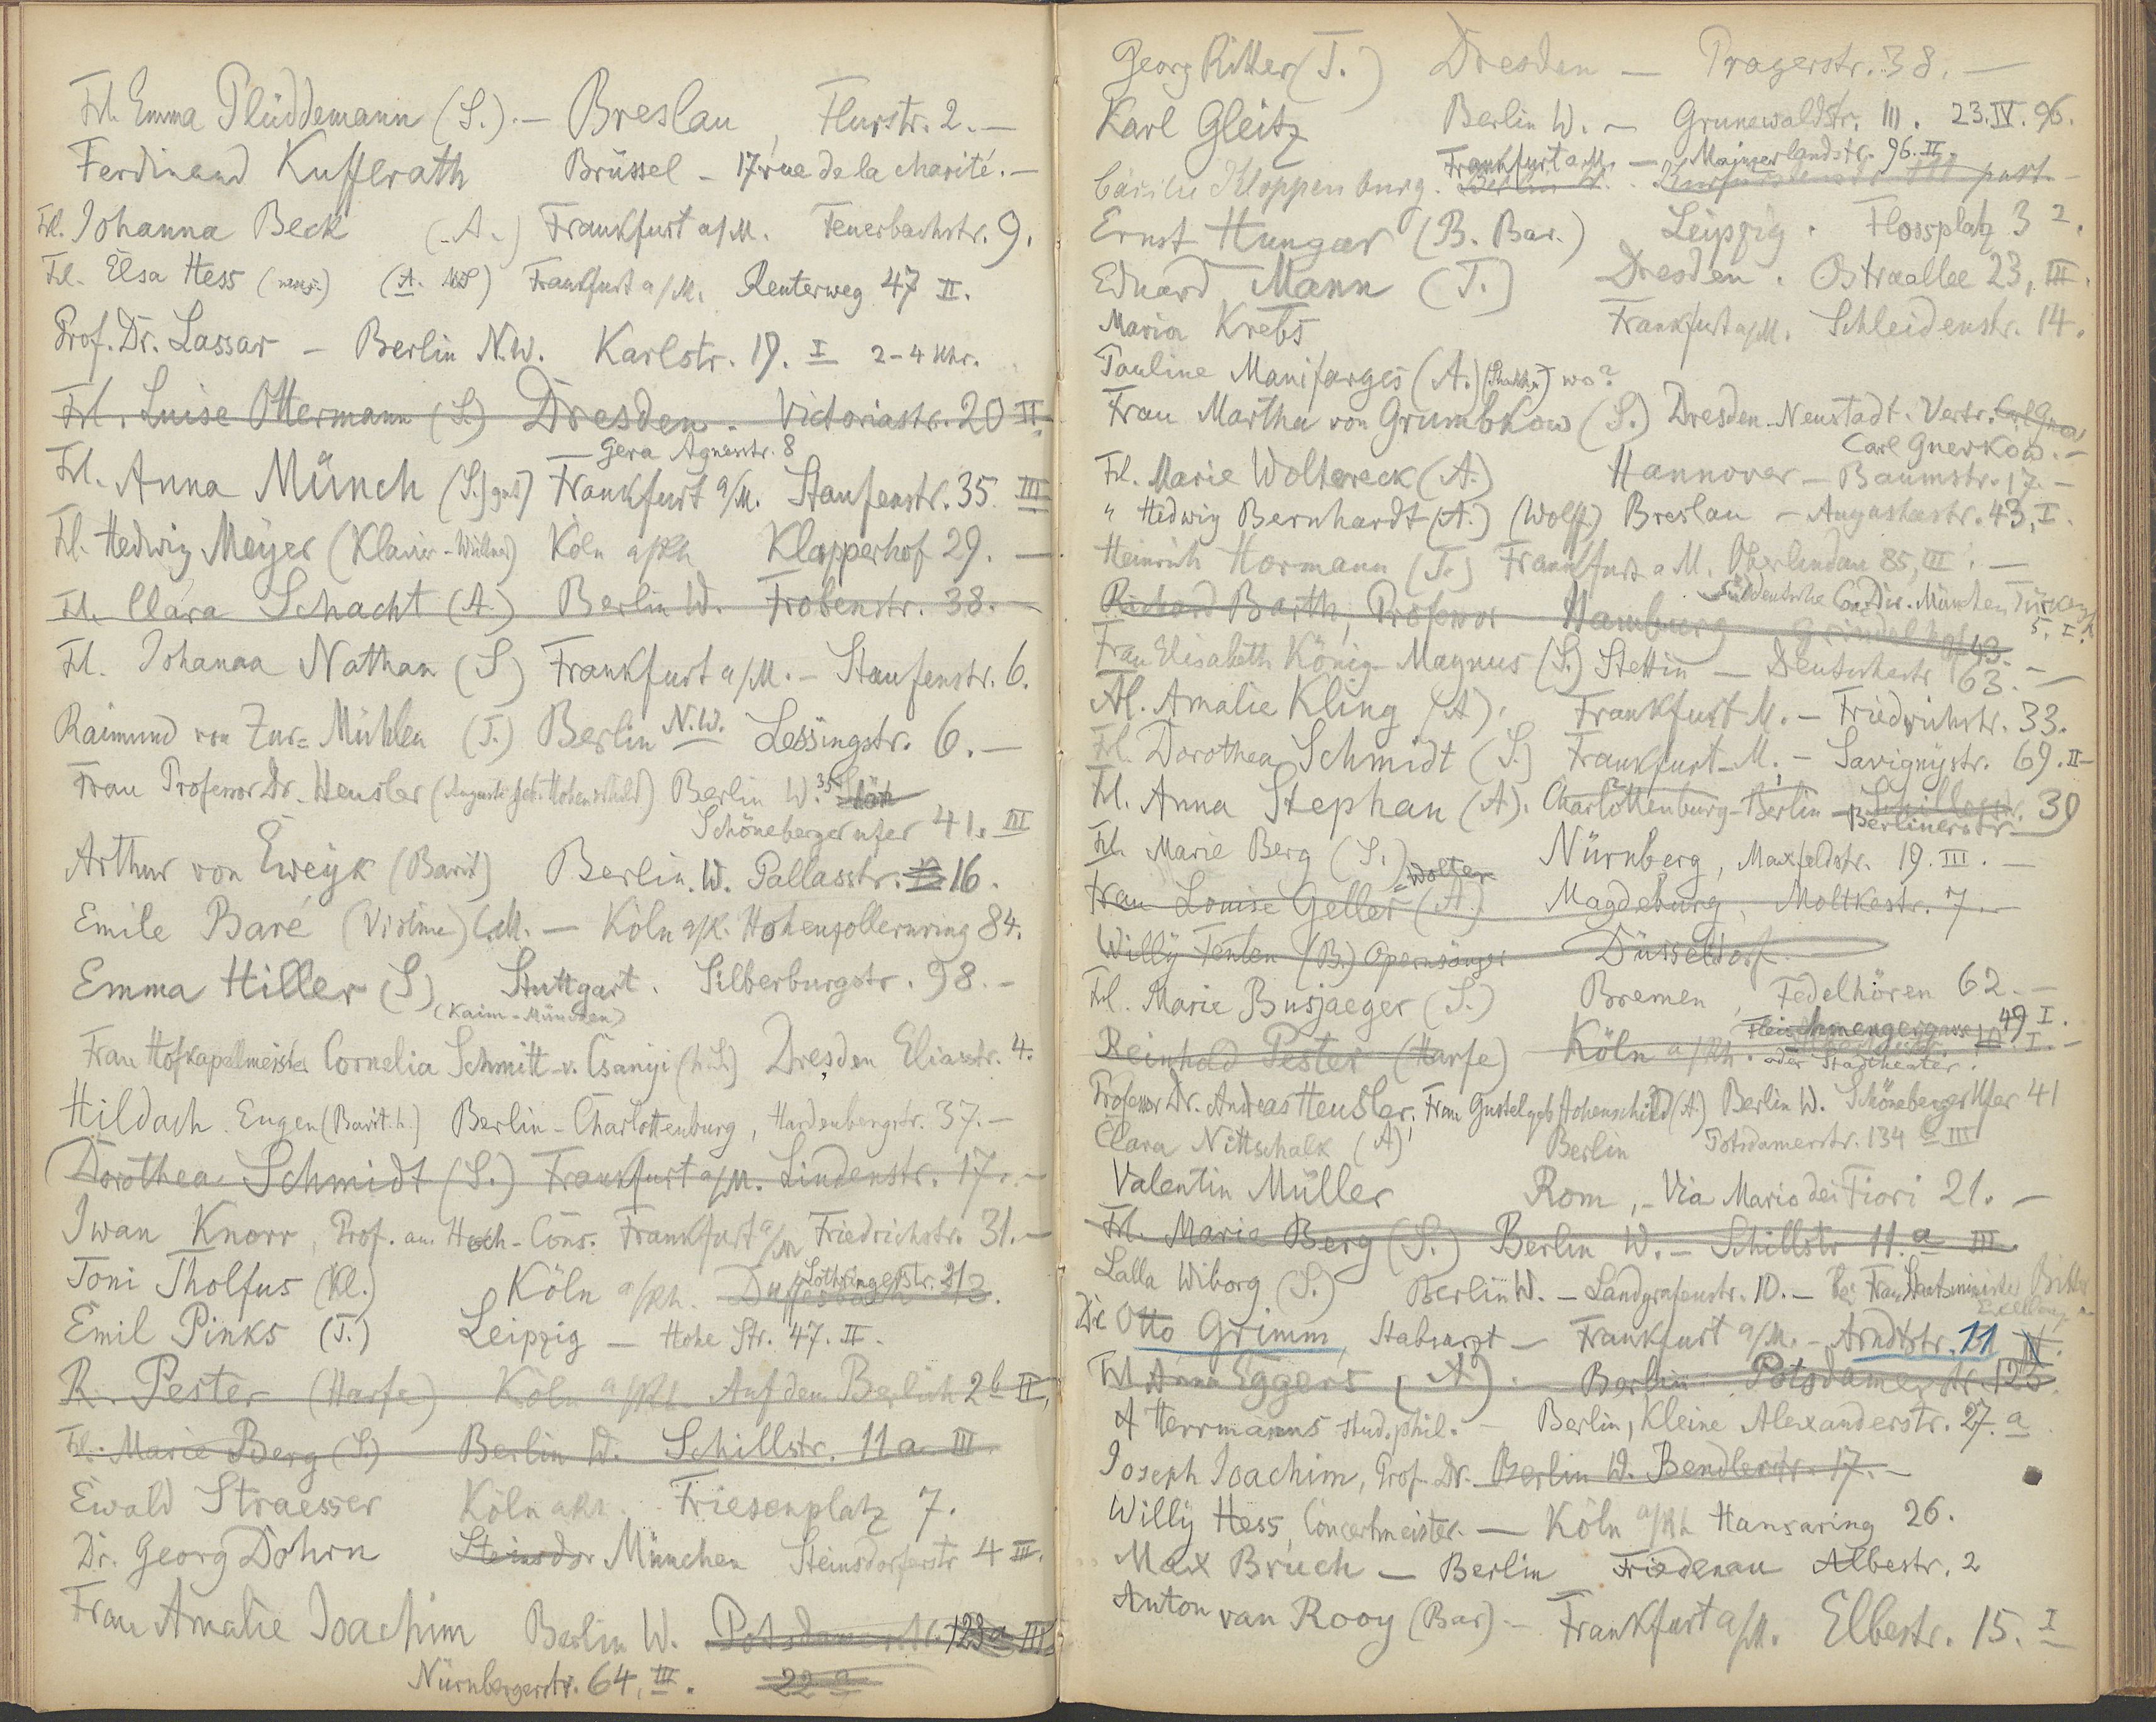 Frl. Emma Plüddemann (S.). — Breslau, Flurstr. 2. —
Ferdinand Kufferath Brüssel – 17 rue de la charité. —
Frl. Johanna Beck (A.) Frankfurt a/M. Feuerbachstr. 9.
Frl. Elsa Hess (A. MS) Frankfurt a/M. Reuterweg 47 II.
Prof. Dr. Lassar – Berlin N.W. Karlstr. 19. I 2-4 Uhr.
Frl. Luise Ottermann (S.) Dresden. Victoriastr. 20 II.
Gera Agnesstr. 8
Frl. Anna Münch (S.) gut) Frankfurt a/M. Staufenstr. 35. III
Frl. Hedwig Meyer (Klavier-Wüllner) Köln a/Rh Klapperhof 29. —
Frl. Clara Schacht (A.) Berlin W. Frobenstr. 38. —
Frl. Johanna Nathan (S) Frankfurt a/M. – Staufenstr. 6.
Raimund von Zur= Mühlen (T.) Berlin N.W. Lessingstr. 6. —
Frau Professor Dr. Heusler (Auguste geb. Hohenschild) Berlin W. 35 Schön
Schönebergerufer 41. III
Arthur von Eweyk (Barit) Berlin. W. Pallasstr. 16.
Emile Baré (Violine) C.M. — Köln a/R. Hohenzollernring 84.
Emma Hiller (S) Stuttgart. Silberburgstr. 98. –
(Kaim-München)
Frau Hofkapellmeister Cornelia Schmitt-v. Csanyi (h.S.) Dresden Eliasstr. 4.
Hildach. Eugen (Barit. h.) Berlin-Charlottenburg, Hardenbergstr. 37. —
Dorothea Schmidt (S.) Frankfurt a/M. Lindenstr. 17. —
Iwan Knorr, Prof. am Hoch-Cons. Frankfurt a/M Friedrichstr. 31. —
Lothringerstr. 21
Toni Tholfus (Kl.) Köln a/Rh. 13.
Emil Pinks (T.) Leipzig — Hohe Str. 47. II.
R. Pester (Harfe) Köln a/Rh. Auf dem Berlich 26 II,
Frl. Marie Berg (S.) Berlin W. Schillstr. 11a III.
Ewald Straesser Köln a/Rh. Friesenplatz 7.
Dr. Georg Dohrn Steinsdor München Steinsdorferstr 4 III.
Frau Amalie Joachim Berlin W. Potsdamerstr. 123a III
Nürnbergerstr. 64, III. 22 a
Georg Ritter (T.) Dresden — Pragerstr. 38. —
Karl Gleitz Berlin W. — Grunewaldstr. 111. 23.IV.96.
Frankfurt a/M. — Mainzerlandstr. 96. II.
Cäcilie Kloppenburg. Berlin W. part. —
Ernst Hungar (B. Bar.) Leipzig. Flossplatz 3 2.
Eduard Mann (T.) Dresden. Ostraallee 23, III.
Maria Krebs Frankfurt a/M. Schleidenstr. 14.
Pauline Manifarges (A.) wo?
Frau Martha von Grumbkow (S.) Dresden-Neustadt. Vertr.
Carl Gnerkow. —
Frl. Marie Woltereck (A.) Hannover – Baumstr. 17. —
" Hedwig Bernhardt (A.) (Wolff) Breslau – Augustastr. 43, I.
Heinrich Hormann (T.) Frankfurt a M. Oberlindau 85, III. —
Süddeutsche Con. Dir. München Türkenstr.
5. I.
Richard Barth, Professor Hamburg Grindelhof 43.
Frau Elisabeth König-Magnus (S.) Stettin — Deutschestr 63. —
Frl. Amalie Kling (A.) Frankfurt M. – Friedrichstr. 33.
Frl. Dorothea Schmidt (S.) Frankfurt-M. – Savignystr. 69. II –
Frl. Anna Stephan (A). Charlottenburg-Berlin Schillerstr. 39
Berlinerstr.
Frl. Marie Berg (S.) Nürnberg, Maxfeldstr. 19. III. —
=Wolter
Frau Louise Geller (A.) Magdeburg, Moltkestr. 7. —
Willy Fenten (B.) Opernsänger Düsseldorf.
Frl. Marie Busjaeger (S.) Bremen, Fedelhören 62. —
Fleischmengergasse 49 I.
Reinhold Pester (Harfe) Köln a/Rh. I. —
oder Stadttheater.
Professor Dr. Andreas Heusler, Frau Gustel geb. Hohenschild (A.) Berlin W. Schöneberger Ufer 41
Clara Nittschalk (A) Berlin Potsdamerstr. 134 III
Valentin Müller Rom, – Via Mario dei Fiori 21. —
Frl. Marie Berg (S.) Berlin W. – Schillstr 11. a III.
Lalla Wiborg (S.) Berlin W. – Landgrafenstr. 10. – bei Frau Staatsminister
Excellenz
Dr Otto Grimm, Stabsarzt — Frankfurt a/M. – Arndtstr. 11
Frl. Anna Eggers (A). Berlin Potsdamerstr. 123
A Herrmanns stud. phil. – Berlin, Kleine Alexanderstr. 27. a
Joseph Joachim, Prof. Dr. Berlin W. Bendlerstr. 17. —
Willy Hess, Concertmeister. — Köln a/Rh Hansaring 26.
Max Bruch — Berlin Friedenau Albestr. 2
Anton van Rooy (Bar) — Frankfurt a/M. Elbestr. 15. I